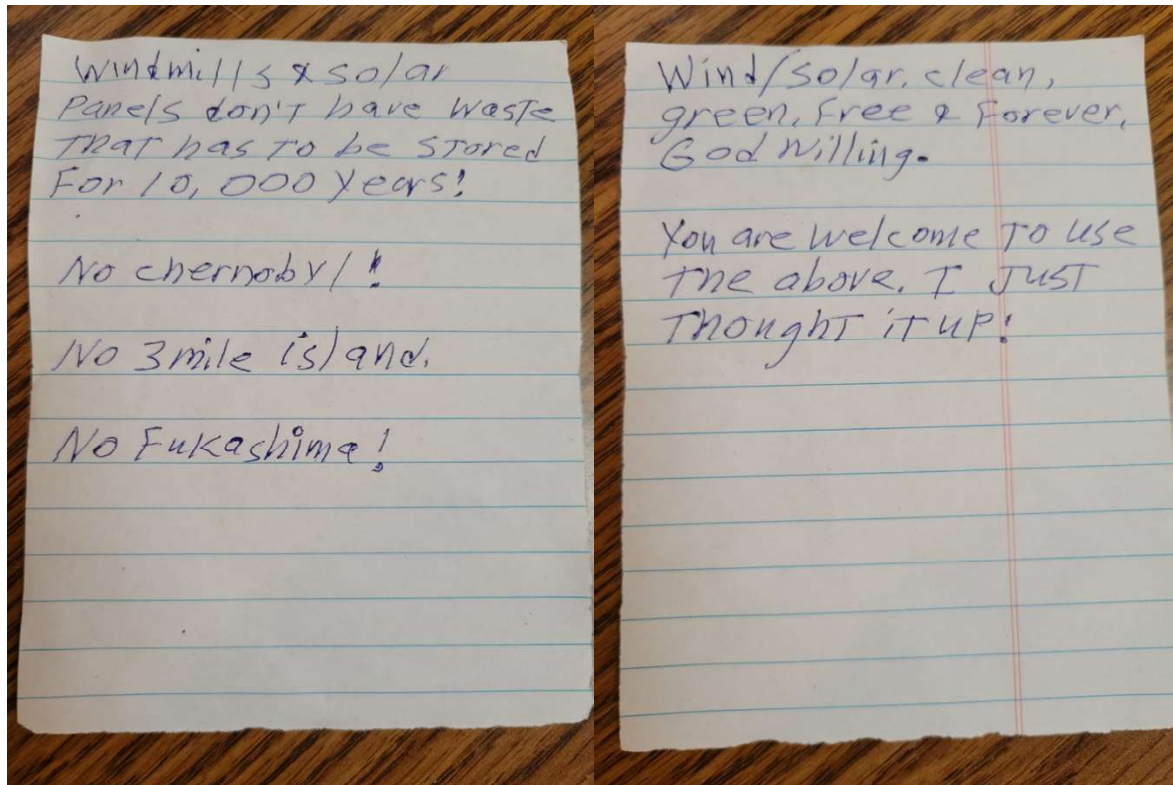 Windmills & solar
Panels don't have waste
That has to be stored
For 10,000 years!
No chernobyl!
No 3mile island.
No Fukashima!
Wind/solar, clean,
green, free & Forever,
God willing.
You are welcome to use
the above. I just
Thought it up!